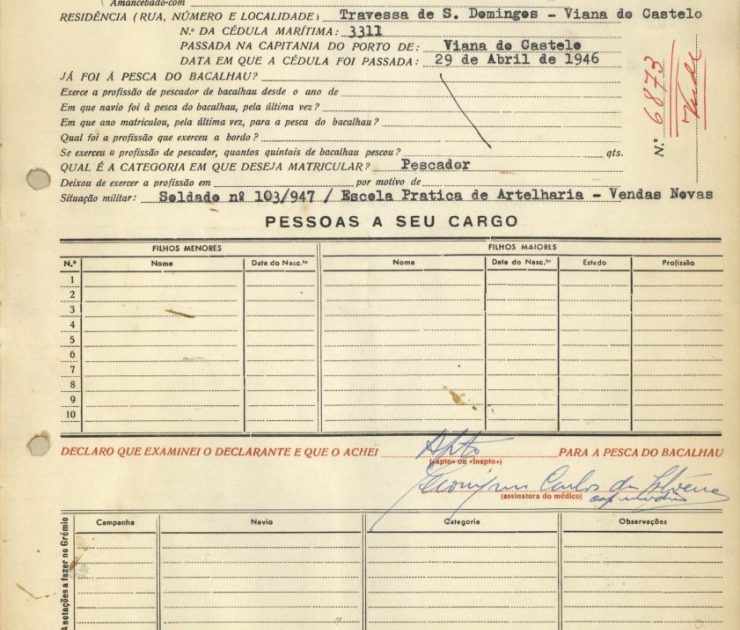 Amancebado-com
RESIDÊNCIA (RUA, NÚMERO E LOCALIDADE) Travessa de S. Domingos - Viana do Castelo
N.º DA CÉDULA MARÍTIMA: 3311
PASSADA NA CAPITANIA DO PORTO DE: Viana do Castelo
DATA EM QUE A CÉDULA FOI PASSADA: 29 de Abril de 1946
JÁ FOI Á PESCA DO BACALHAU?
Exerce a profissão de pescador de bacalhau desde o ano de
Em que navio foi à pesca do bacalhau, pela última vez?
Em que ano matriculou, pela última vez, para a pesca do bacalhau?
Qual foi a profissão que exerceu a bordo?
Se exerceu a profissão de pescador, quantos quintais de bacalhau pescou? qts.
QUAL É A CATEGORIA EM QUE DESEJA MATRICULAR? Pescador
Deixou de exercer a profissão em por motivo de
Situação militar: Soldado nº 103/947 / Escola Pratica de Artelharia - Vendas Novas
N.º 6873
PESSOAS A SEU CARGO
FILHOS MENORES FILHOS MAIORES
N.º Nome Data do Nasc.to Nome Data do Nasc.to Estado Profissão
1
2
3
4
5
6
7
8
9
10
DECLARO QUE EXAMINEI O DECLARANTE E QUE O ACHEI Apto PARA A PESCA DO BACALHAU
(«Apto» ou «inapto»)
Carlos da
(assinatura do médico)
Anotações a fazer no Grémio
Campanha Navio Categoria Observações